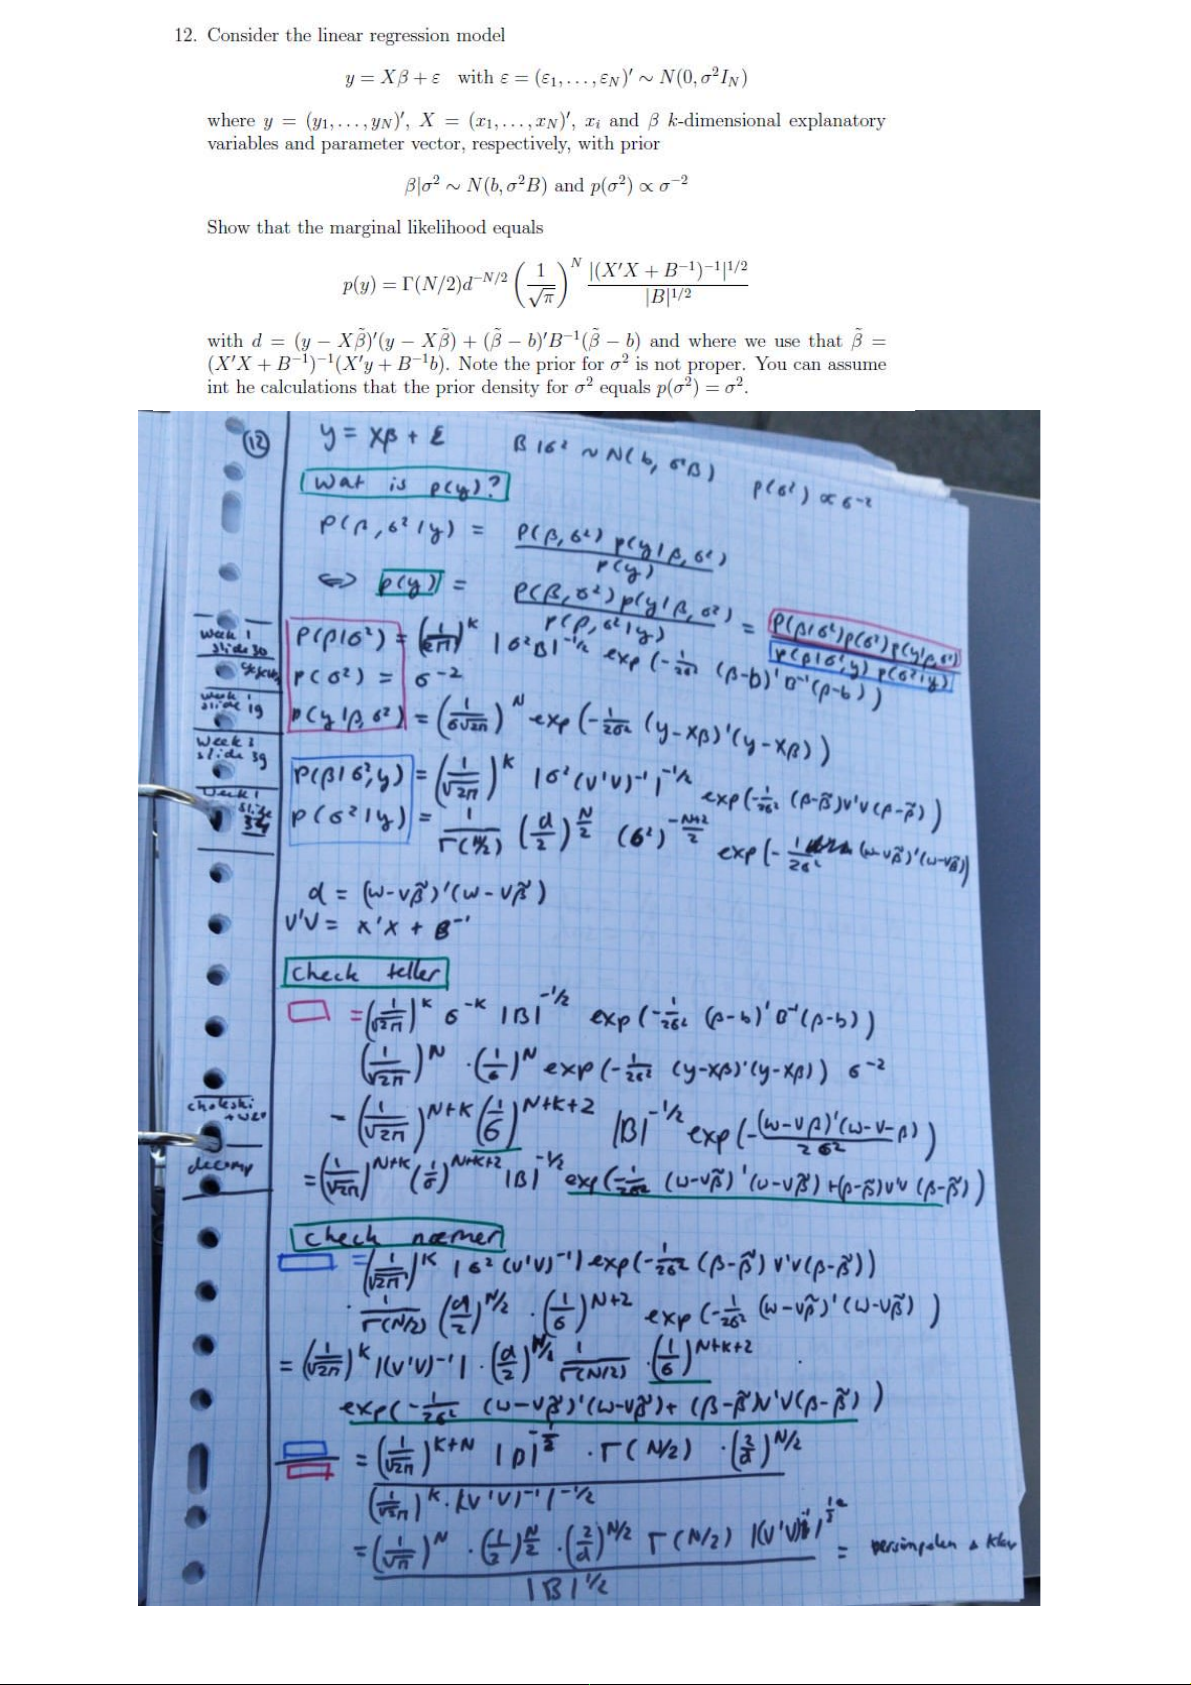 12. Consider the linear regression model
y = Xβ + ε with ε = (ε₁, . . . , ε_N)′ ∼ N(0, σ²I_N)
where y = (y₁, . . . , y_N)′, X = (x₁, . . . , x_N)′, xᵢ and β k-dimensional explanatory
variables and parameter vector, respectively, with prior
β|σ² ∼ N(b, σ²B) and p(σ²) ∝ σ⁻²
Show that the marginal likelihood equals
p(y) = Γ(N/2)d^{-N/2} (1/√π)^N |(X′X + B⁻¹)⁻¹|^{1/2} / |B|^{1/2}
with d = (y − Xβ̃)′(y − Xβ̃) + (β̃ − b)′B⁻¹(β̃ − b) and where we use that β̃ =
(X′X + B⁻¹)⁻¹(X′y + B⁻¹b). Note the prior for σ² is not proper. You can assume
int he calculations that the prior density for σ² equals p(σ²) = σ².
(12) y = Xβ + ε β|σ² ∼ N(b, σ²B) p(σ²) ∝ σ⁻²
Wat is p(y)?
p(β,σ²|y) = p(β,σ²) p(y|β,σ²) / p(y)
⇔ p(y) = p(β,σ²) p(y|β,σ²) / p(β,σ²|y) = p(β|σ²)p(σ²)p(y|β,σ²) / p(β|σ²,y) p(σ²|y)
week 1
slide 30
p(β|σ²) = (1/√2π)^k |σ²B|^{-1/2} exp(-1/2σ² (β-b)'B⁻¹(β-b))
p(σ²) = σ⁻²
week 1
slide 19
p(y|β,σ²) = (1/σ√2π)^N exp(-1/2σ² (y-Xβ)'(y-Xβ))
week 2
slide 39
p(β|σ²,y) = (1/√2π)^k |σ²(V'V)⁻¹|^{-1/2} exp(-1/2σ² (β-β̃)V'V(β-β̃))
week 1
slide
p(σ²|y) = 1/Γ(N/2) (d/2)^{N/2} (σ²)^{-(N+2)/2} exp(-1/2σ² (w-Vβ̃)'(w-Vβ̃))
d = (w-Vβ̃)'(w-Vβ̃)
V'V = X'X + B⁻¹
check teller
= (1/√2π)^k σ^{-k} |B|^{-1/2} exp(-1/2σ² (β-b)'B⁻¹(β-b))
(1/√2π)^N · (1/σ)^N exp(-1/2σ² (y-Xβ)'(y-Xβ)) σ⁻²
= (1/√2π)^{N+k} (1/σ)^{N+k+2} |B|^{-1/2} exp(-(w-Vβ)'(w-Vβ) / 2σ²)
decomp
= (1/√2π)^{N+k} (1/σ)^{N+k+2} |B|^{-1/2} exp(-1/2σ² (w-Vβ̃)'(w-Vβ̃) + (β-β̃)V'V(β-β̃))
check noemer
= (1/√2π)^k |σ²(V'V)⁻¹| exp(-1/2σ² (β-β̃)V'V(β-β̃))
· 1/Γ(N/2) (d/2)^{N/2} · (1/σ)^{N+2} exp(-1/2σ² (w-Vβ̃)'(w-Vβ̃))
= (1/√2π)^k |(V'V)⁻¹| · (d/2)^{N/2} 1/Γ(N/2) · (1/σ)^{N+k+2}
exp(-1/2σ² (w-Vβ̃)'(w-Vβ̃) + (β-β̃)V'V(β-β̃))
= (1/√2π)^{k+N} |B|^{-1/2} · Γ(N/2) · (2/d)^{N/2}
(1/√2π)^k · |(V'V)⁻¹|^{-1/2}
= (1/√π)^N · (1/2)^{N/2} · (2/d)^{N/2} Γ(N/2) |(V'V)⁻¹|^{1/2} = versimpelen & klaar
|B|^{1/2}